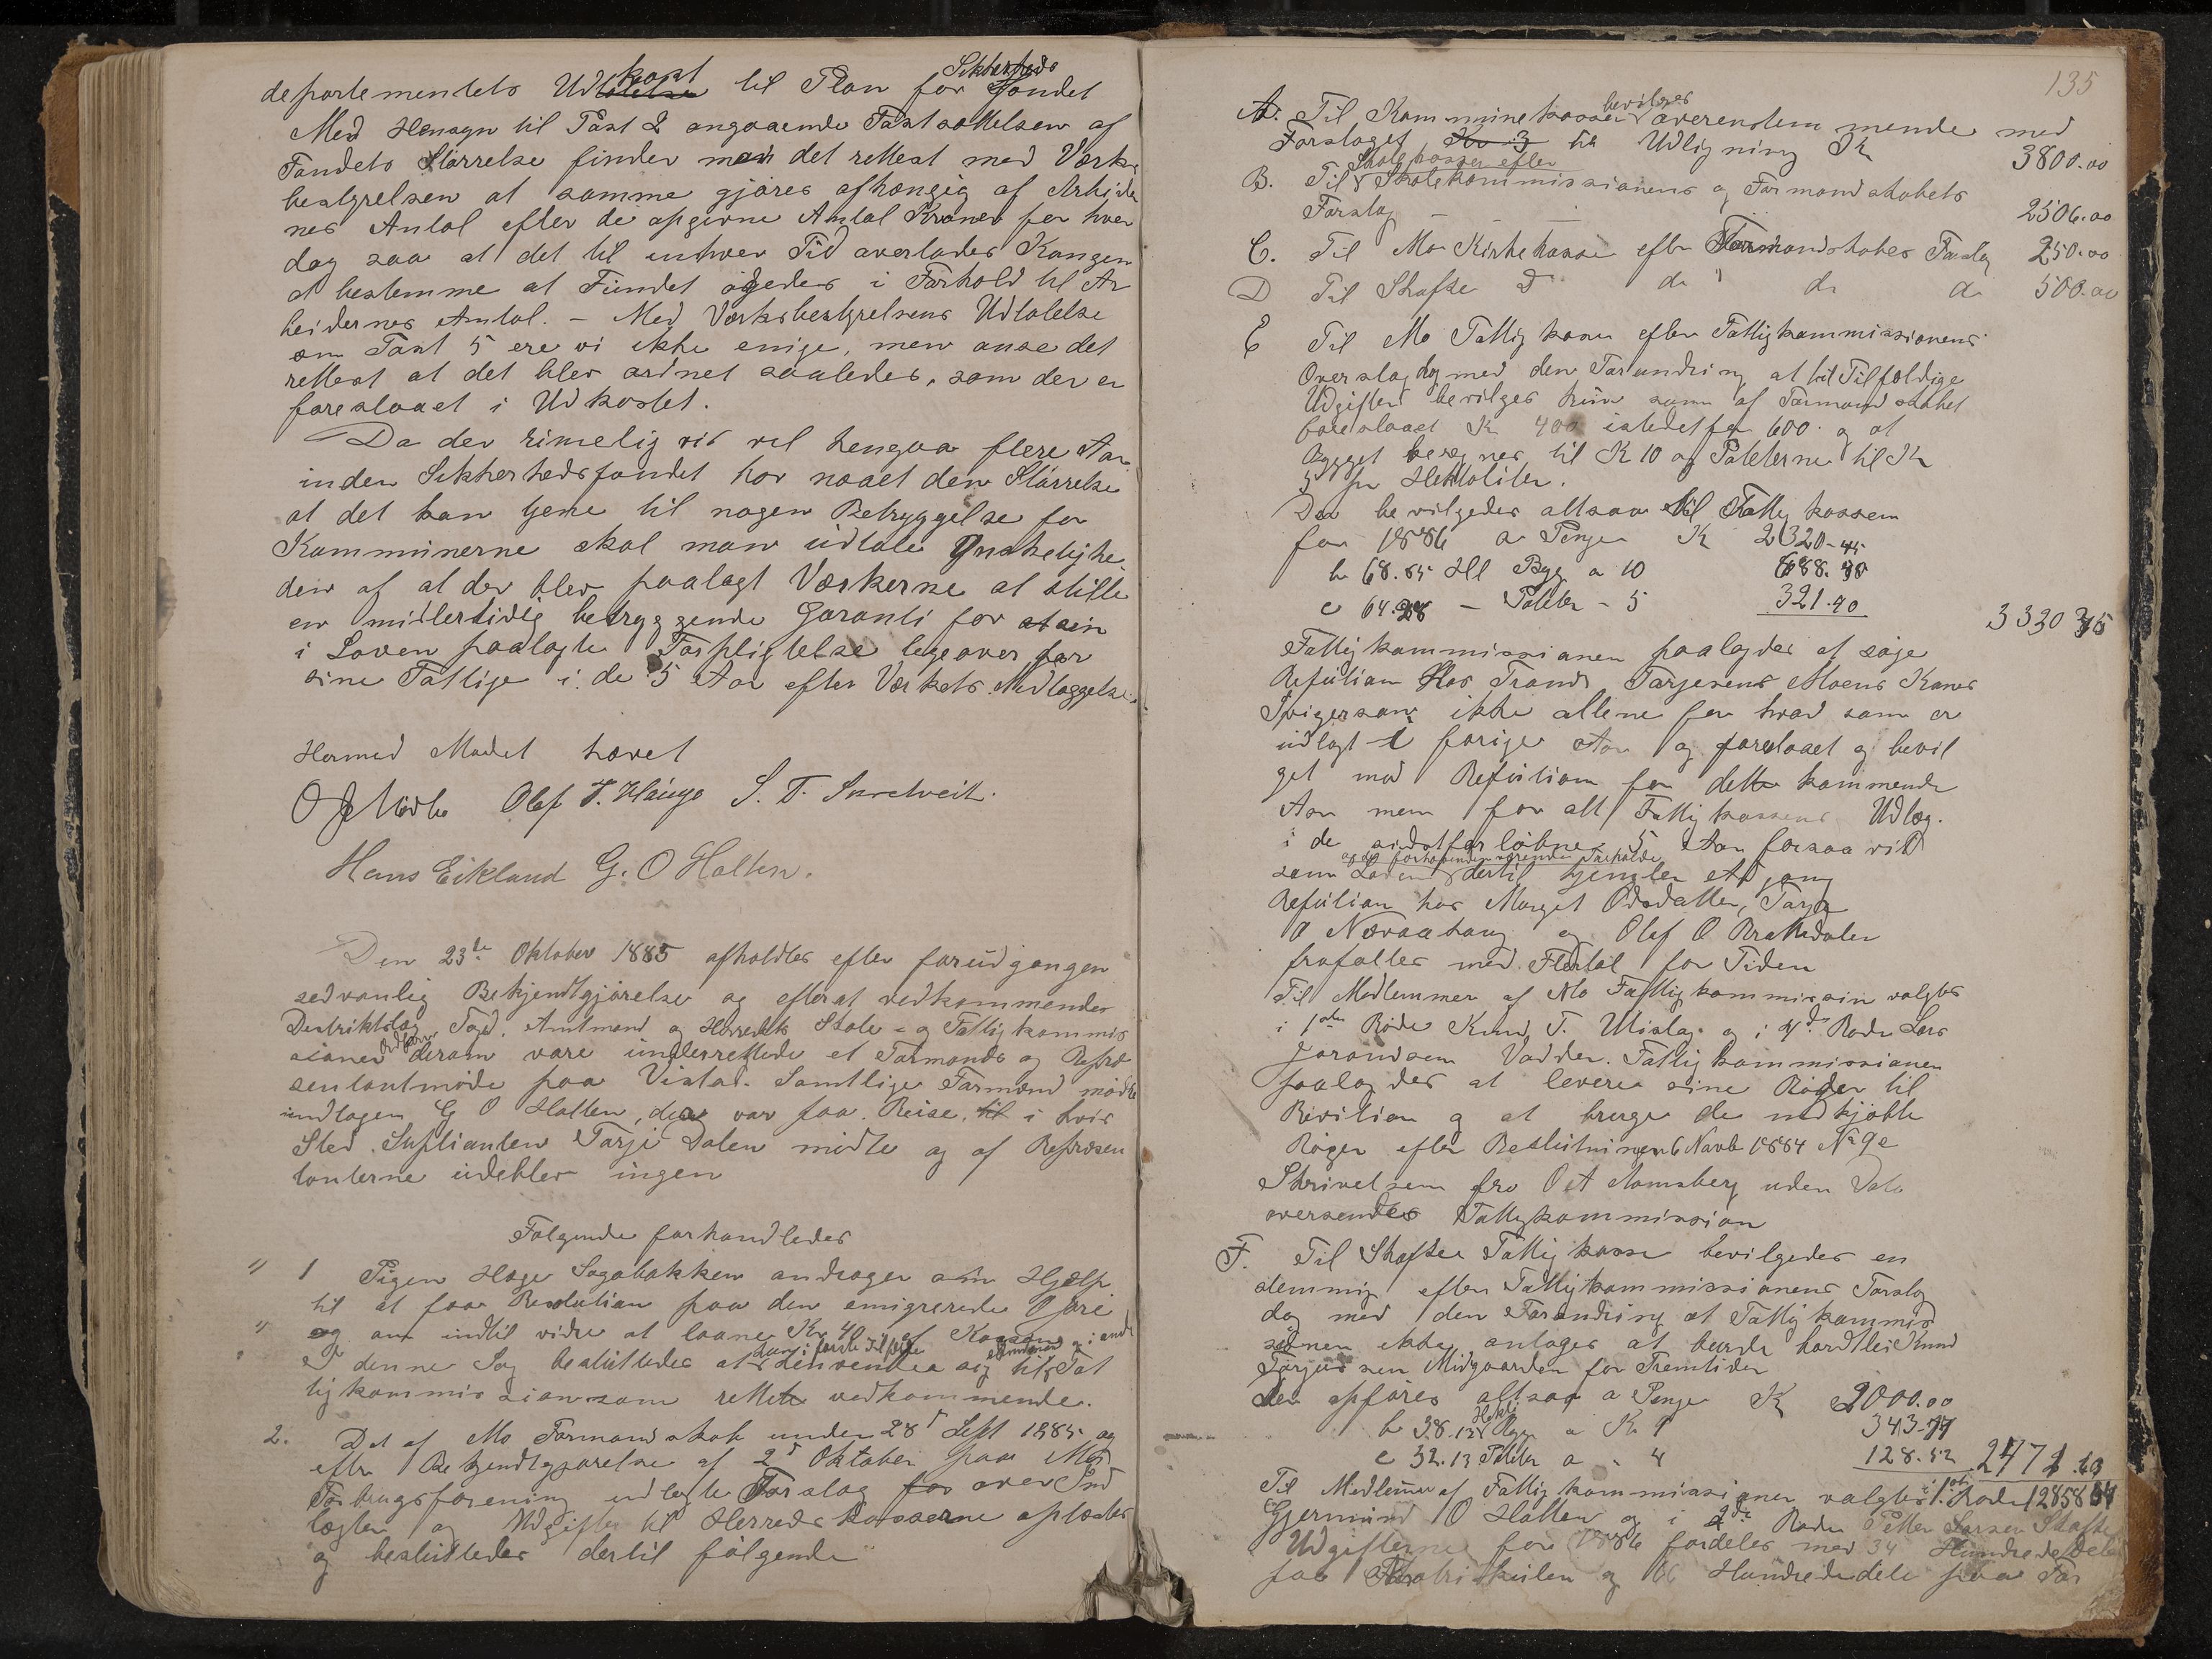 departementets Udkast til Plan for Sikkerhedsfondet
Med Hensyn til Post 2 angaaende Fastsættelsen af
Fondets Størrelse finder man det rettest med Værks
bestyrelsen at samme gjøres afhængig af Arbeider
nes Antal efter de opgivne Antal Kroner for hver
dog saa at det til enhver Tid overlades Kongen
at bestemme at Fondet øgedes i Forhold til Ar
beidernes Antal. – Med Værksbestyrelsens Udtalelse
om Post 5 ere vi ikke enige, men anse det
rettest at det blev ordnet saaledes, som der er
foreslaaet i Udkastet.
Da der rimelig vis vil hengaa flere Aar
inden Sikkerhedsfondet har naaet den Størrelse
at det kan tjene til nogen Betryggelse for
Kommunerne skal man udtale Ønskelighe
den af at der blev paalagt Værkerne at stille
en midlertidig betryggende Garanti for sin
i Loven paalagte Forpligtelse ligeover for
sine Fattige i de 5 Aar efter Værkets Nedlæggelse.
Hermed Mødet hævet
Olef T. Haugo S. T. Snretveit.
Hans Eikland G. O Holten.
Den 23de Oktober 1885 afholdtes efter forudgangen
sedvanlig Bekjendtgjørelse og efterat vedkommende
Distriktslæg, Foged. Amtmand og Herredets Skole- og Fattigkommis
sioner derom vare underrettede et Formands og Repræ
sentantmøde paa Vistad. Samtlige Formænd mødte
undtagen G O Holten, der var paa Reise, i hvis
Sted Suplianten Tarje Dalen mødte og af Repræsen
tanterne udeblev ingen
Følgende forhandledes
" 1 Pigen Hæge Sagabakken andrager om Hjælp
til at faa Resolution paa den emigrerede O
" og om indtil videre at laane Kr 4 af Kassen
I denne Sag besluttedes at hun i første Tilfælde henvender sig til Fat
tigkommissionen som rette vedkommende.
2. Det af Mo Formandskab under 28de Sept 1885 og
efter Bekjendtgjørelse af 2de Oktober paa Mo
Forbrugsforening udlagte Forslag over Ind
tægter og Udgifter til Herredskasserne oplæstes
og besluttedes dertil følgende
135
A. Til Kommunekassen bevilges overenstemmende med
Forslaget til Udligning Kr 3800.00
B. Til Skolekassen efter Skolekommissionens og Formandskabets
Forslag – – – 2506.00
C. Til Mo Kirkekasse efter Formandskabes Forslag 250.00
D Til Skafse D do do do 500.00
E Til Mo Fattigkasse efter Fattigkommissionens
Overslag dog med den Forandring at til Tilfældige
Udgifter bevilges kun som af Formandskabet
foreslaaet Kr 400 istedetfor 600 og at
Bygget beregnes til K 10 og Poteterne til Kr
5 pr Hektoliter.
Der bevilgedes altsaa til Fattigkassen
for 1886 a Penge K 2320-45
b 68.85 Hl Byg a 10 688.50
c 64.28 – Poteter – 5 321.40
3330 35
Fattigkommissionen paalagdes at søge
Refusion hos Trond Tarjesens Moens Kones
Svigersøn ikke allene for hvad som er
udlagt i forige Aar og foreslaaet og bevil
get mod Refusion for dette kommende
Aar men for alt Fattigkassens Udlæg
i de sidstforløbne 5 Aar forsaavidt
som Loven og de forhaandenværende Forholde dertil hjemler
Refusion hos Marget Odsdatter, Tarje
O Næraahaug og Olaf O Brattedalen
frafalles med Flertal for Tiden
Til Medlemmer af Mo Fattigkommission valgtes
i 1ste Rode Knud T. Uislag og i 4de Rode Lars
Jorandsen Vadder. Fattigkommissionen
paalagdes at levere sine Bøger til
Revision og at bruge de indkjøbte
Bøger efter Beslutningen 6 Novb 1884 No 9e
Skrivelsen fra O A Momsberg uden Dato
oversendes Fattigkommission
F. Til Skafse Fattigkasse bevilgedes en
stemmig efter Fattigkommissionens Forslag
dog med den Forandring at Fattigkommis
sionen ikke antages at burde bortleie Knud
Tarjussen Midgaarden for Fremtiden
der opføres altsaa a Penge K 2000.00
b 38.12 Hektl Byg a K 9 343-
c 32.13 Poteter a - 4 128.52 2471.
Til Medlemmer af Fattigkommissionen valgtes i 1ste Rode 12858
Gjermund O Holten og i 2de Rode Petter Larsen Skafse
Udgifterne for 1886 fordeles med 34 Hundrededele
paa Matrikulen og 66 Hundrededele paa For